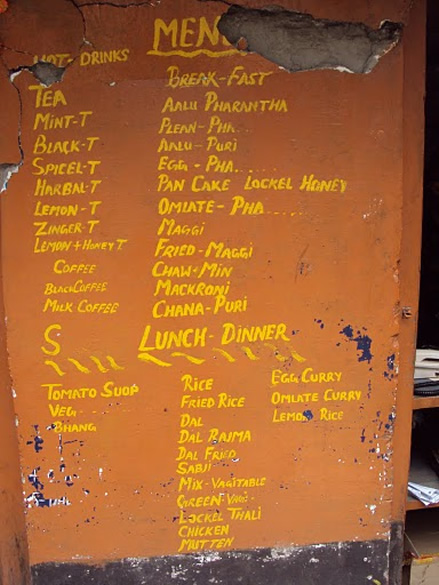 MENU
HOT- DRINKS
TEA
MINT-T
BLACK-T
SPICEL-T
HARBAL-T
LEMON-T
ZINGER-T
LEMON+HONEY T
COFFEE
BLACK COFFEE
MILK COFFEE
BREAK-FAST
AALU PHARANTHA
PLEAN-PHA..
AALU-PURI
EGG-PHA......
PAN CAKE LOCKEL HONEY
OMLATE-PHA......
MAGGI
FRIED-MAGGI
CHAW-MIN
MACKRONI
CHANA-PURI
S
LUNCH-DINNER
TOMATO SUOP
VEG--
BHANG
RICE
FRIED RICE
DAL
DAL RAJMA
DAL FRIED
SABJI
MIX-VAGITABLE
GREEN-VAGI-
LOCKEL THALI
CHICKEN
MUTTEN
EGG CURRY
OMLATE CURRY
LEMON RICE